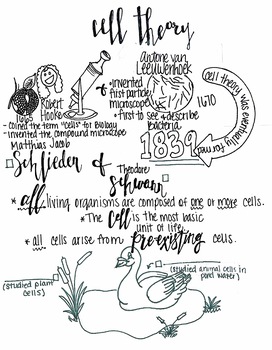 cell theory
Antone van
Leeuwenhoek
• invented
first particle
microscope
• first to see & describe
bacteria
1670
1665
Robert
Hooke
- Coined the term "cells" for Biology
- invented the compound microscope
cell theory was eventually
formed
1839
Matthias Jacob
Schlieden &
Theodore
Schwann
* all living organisms are composed of one or more cells.
* The Cell is the most basic
unit of life.
* all cells arise from pre-existing cells.
(studied plant
cells)
(studied animal cells in
pond water)